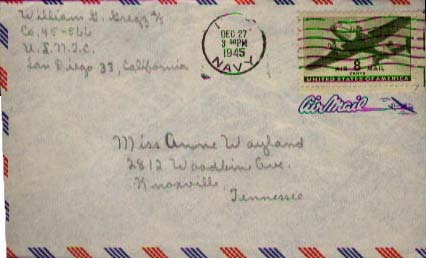 William G. Gregg
Co. 45-566
U.S.N.T.C.
San Diego 33, California
DEC 27
3 30 PM
1945
NAVY
AIR 8 MAIL
CENTS
UNITED STATES OF AMERICA
Air Mail
Miss Anne Wayland
2812 Woodbine Ave.
Knoxville
Tennessee